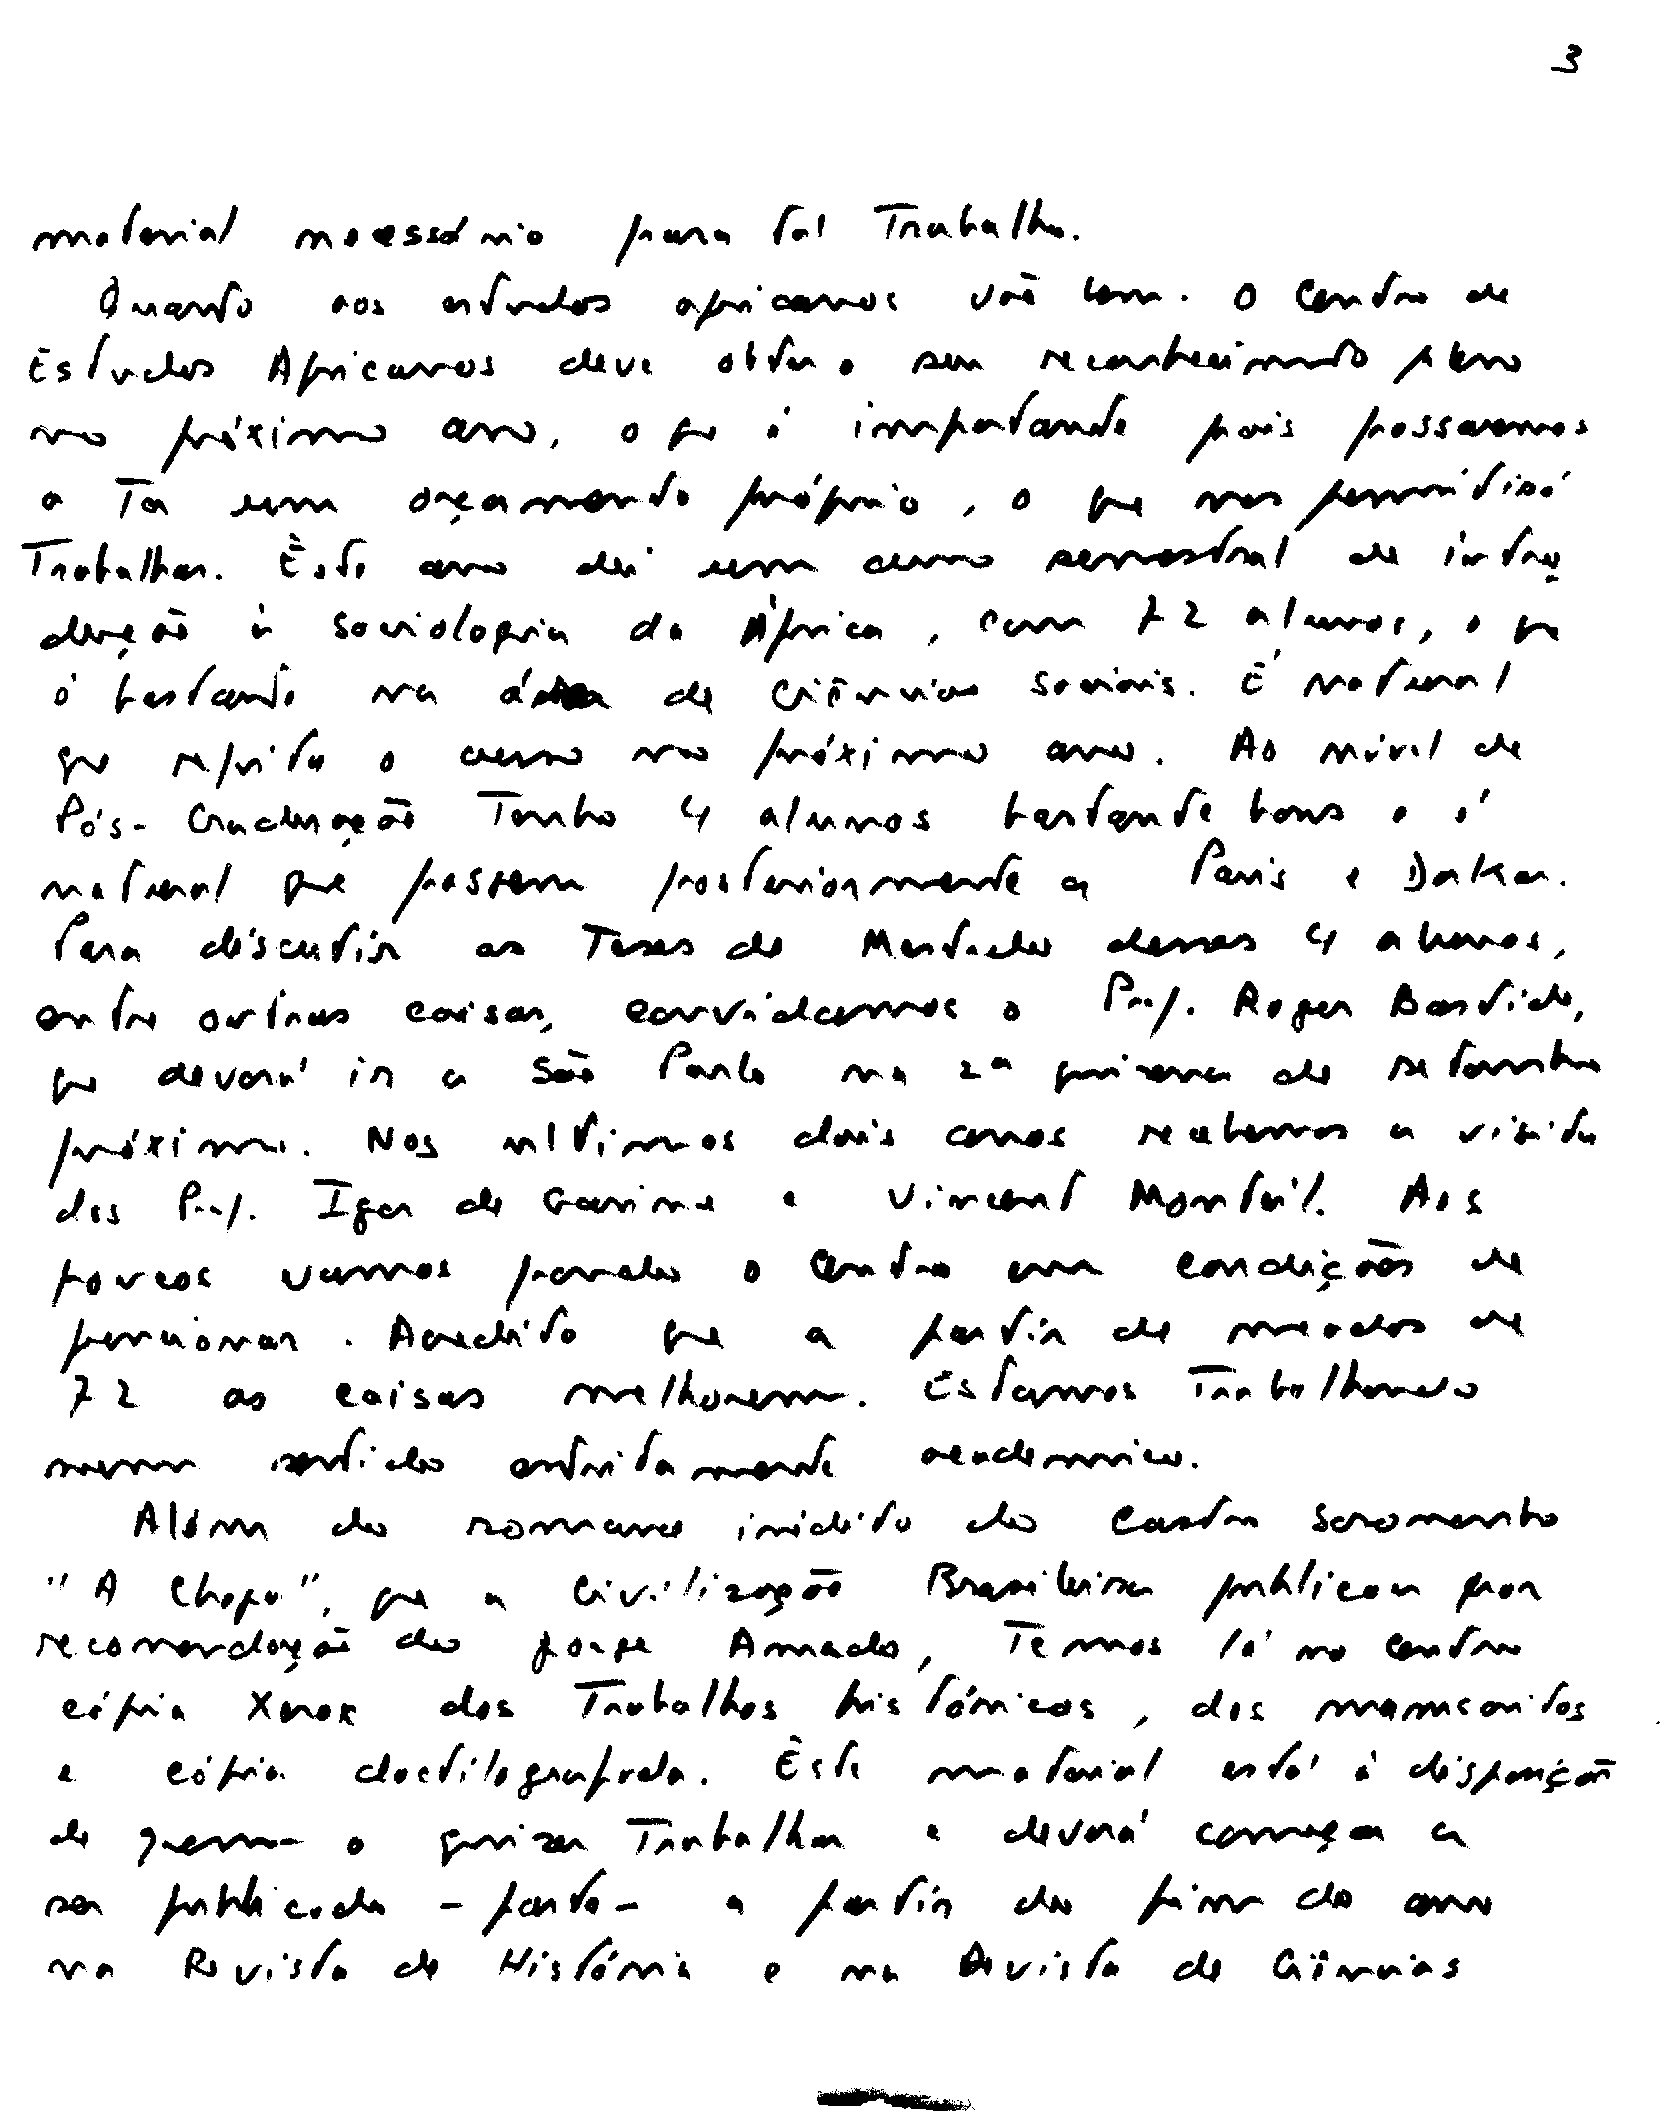 3
material necessário para tal Trabalho.
Quando aos estudos africanos vão bem. O Centro de
Estudos Africanos deve obter o seu reconhecimento pleno
no próximo ano, o que é importante pois passaremos
a Ter um orçamento próprio, o que nos permitirá
Trabalhar. Êste ano dei um curso semestral de intro
dução à sociologia da África, com 72 alunos, o que
é bastante na área de Ciências Sociais. É natural
que repita o curso no próximo ano. Ao nível de
Pós-Graduação Tenho 4 alunos bastante bons e é
natural que passem posteriormente a Paris e Dakar.
Para discutir as Teses de Mestrado desses 4 alunos,
entre outras coisas, convidamos o Prof. Roger Bastide,
que deverá ir a São Paulo na 2ª quinzena de setembro
próximo. Nos ultimos dois anos recebemos a visita
dos Prof. Igor de Garine e Vincent Monteil. Aos
poucos vamos pondo o Centro em condições de
funcionar. Acredito que a partir de meados de
72 as coisas melhorem. Estamos Trabalhando
num sentido estritamente academico.
Além do romance inédito do Castro Soromenho
"A Chaga", que a Civilização Brasileira publicou por
recomendação do Jorge Amado, Temos lá no Centro
cópia Xerox dos Trabalhos históricos, dos manuscritos
e cópia dactilografada. Êste material está à disposição
de quem o quizer Trabalhar e deverá começar a
ser publicado - parte - a partir do fim do ano
na Revista de História e na Revista de Ciências